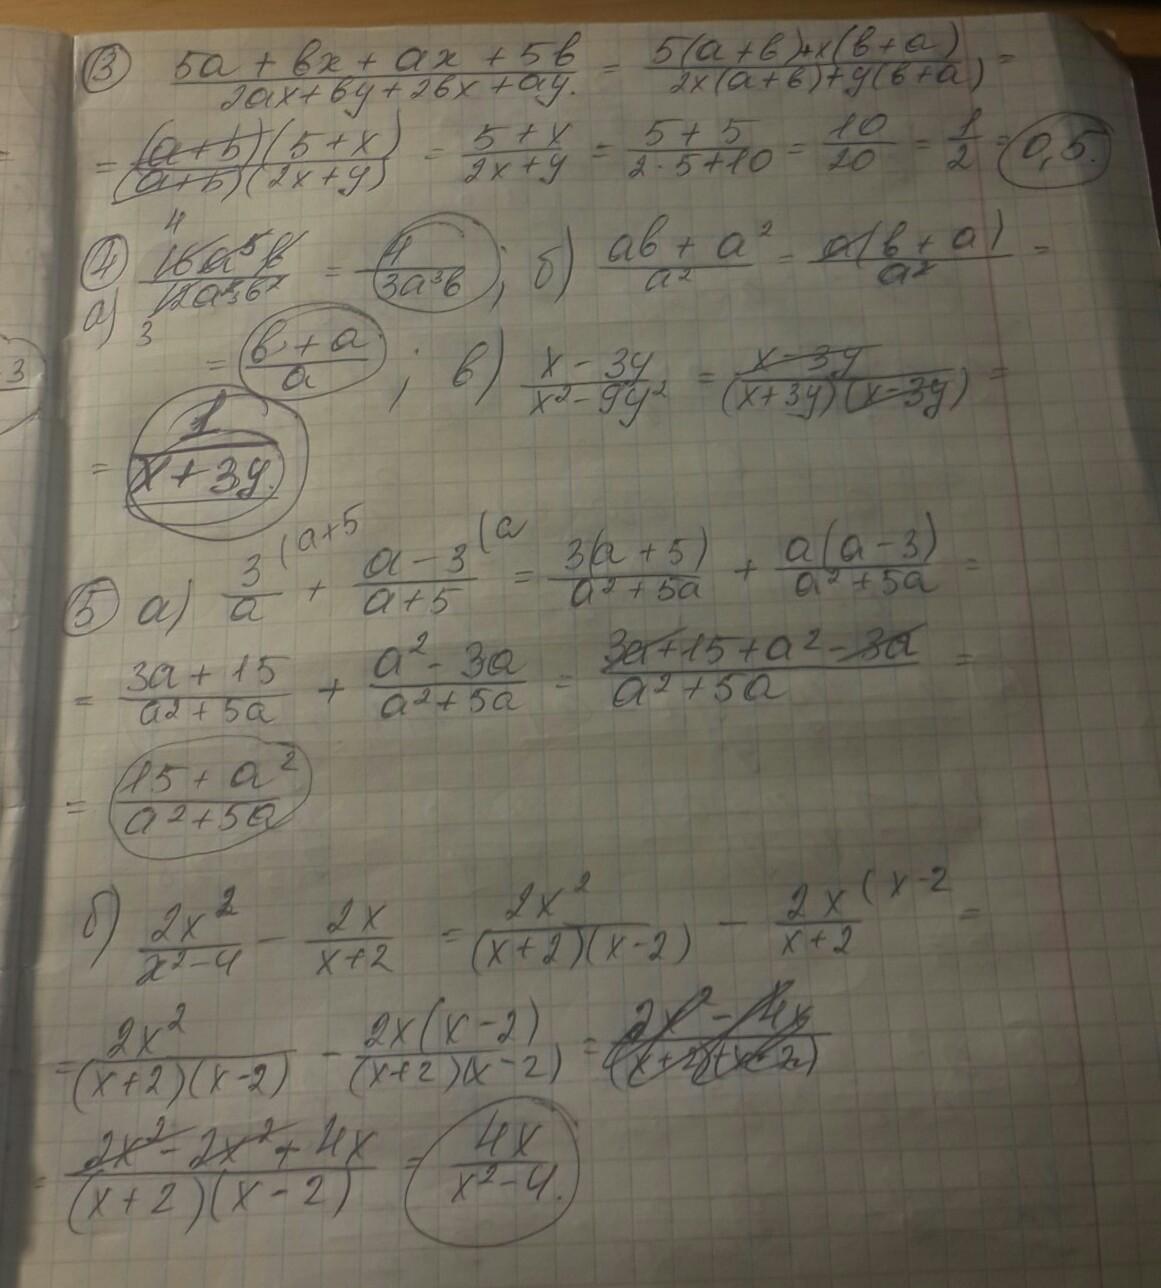 3) (5a + bx + ax + 5b)/(2ax + by + 2bx + ay.) = (5(a+b)+x(b+a))/(2x(a+b)+y(b+a)) =
= ((a+b)(5+x))/((a+b)(2x+y)) = (5+x)/(2x+y) = (5+5)/(2·5+10) = 10/20 = 1/2 = 0,5.
4) а) 16a⁵b/12a⁸b² = 4/3a³b ; б) (ab + a²)/a² = a(b+a)/a² =
= (b+a)/a ; в) (x-3y)/(x²-9y²) = (x-3y)/((x+3y)(x-3y)) =
= 1/(x+3y.)
5) а) 3/a (a+5 + (a-3)/(a+5) (a = 3(a+5)/(a²+5a) + a(a-3)/(a²+5a) =
= (3a+15)/(a²+5a) + (a²-3a)/(a²+5a) = (3a+15+a²-3a)/(a²+5a) =
= (15+a²)/(a²+5a)
б) 2x²/(x²-4) - 2x/(x+2) = 2x²/((x+2)(x-2)) - 2x/(x+2) (x-2 =
= 2x²/((x+2)(x-2)) - 2x(x-2)/((x+2)(x-2)) =
= (2x²-2x²+4x)/((x+2)(x-2)) = 4x/(x²-4.)